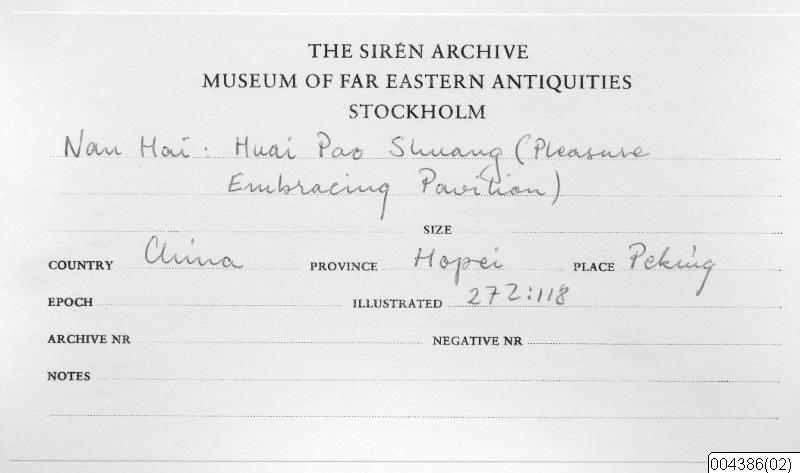 THE SIRÉN ARCHIVE
MUSEUM OF FAR EASTERN ANTIQUITIES
STOCKHOLM
Nan Hai: Huai Pao Shuang (Pleasure
Embracing Pavition)
SIZE
COUNTRY China PROVINCE Hopei PLACE Peking
EPOCH ILLUSTRATED 272:118
ARCHIVE NR NEGATIVE NR
NOTES
004386(02)